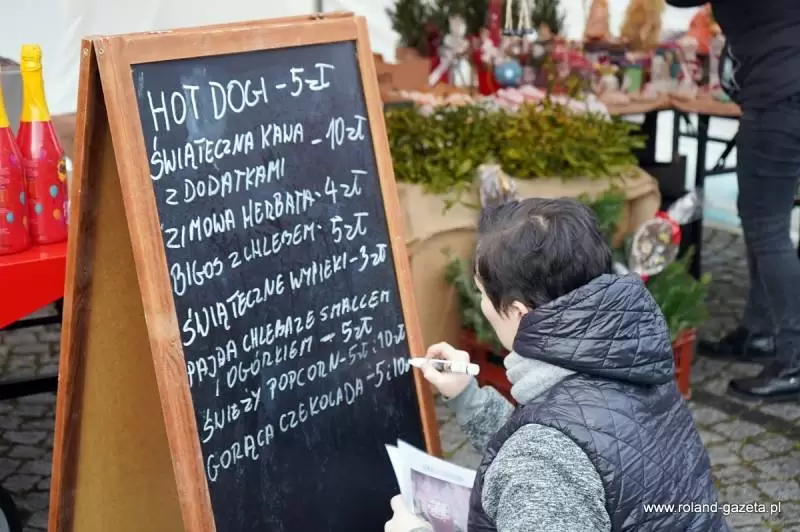 HOT DOGI - 5 zł
ŚWIĄTECZNA KAWA - 10 zł
Z DODATKAMI
ZIMOWA HERBATA - 4 zł
BIGOS Z CHLEBEM - 5 zł
ŚWIĄTECZNE WYPIEKI - 3 zł
PAJDA CHLEBA ZE SMALCEM
I OGÓRKIEM - 5 zł
ŚWIEŻY POPCORN - 5 zł i 10 zł
GORĄCA CZEKOLADA - 5 i 10
www.roland-gazeta.pl